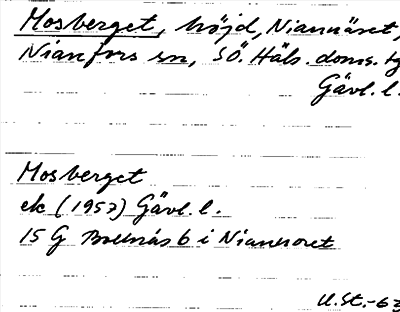 Mosberget, höjd, Niannäset,
Nianfors sn, SÖ. Häls. doms. tg
Gävl. l.
Mosberget
ek (1957) Gävl. l.
15 G Bollnäs 6 i Niannoret
U.St.-63